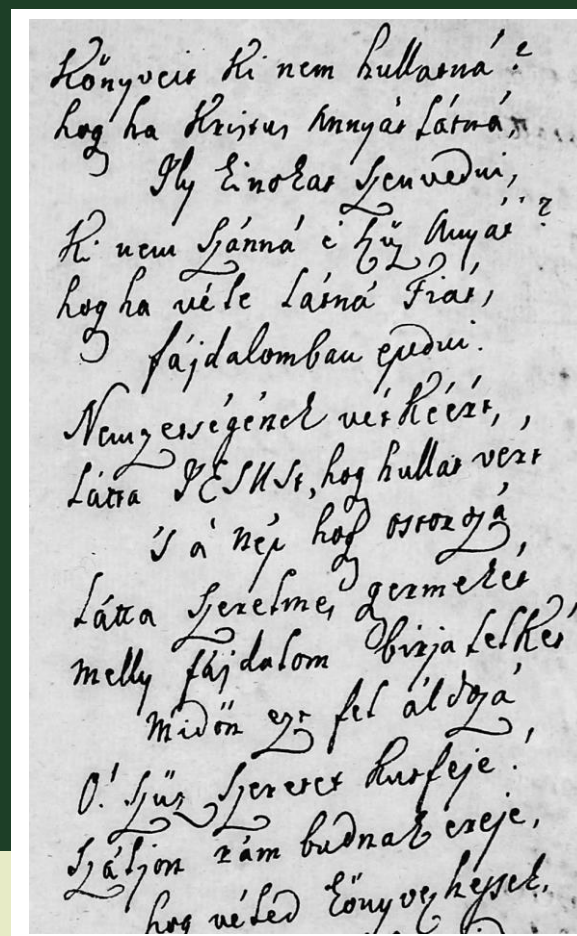 Könyveit Ki nem hullatná?
hog ha Kristus Annyát Látná,
Ily kinokat szenvedni,
Ki nem szánná é szűz Annyát?
hog ha véle Látná Fiát,
fájdalomban epedni.
Nemzetségének vétkéért,
Látta JESUSt, hog hullat vért
's á nép hog ostorozá
Látta szerelmes germekét
melly fájdalom birja lelkét
midőn ezt fel áldozá
O! szűz szeretet kutfeje!
szálljon rám budnak ereje,
hog véled könyvezhessek,